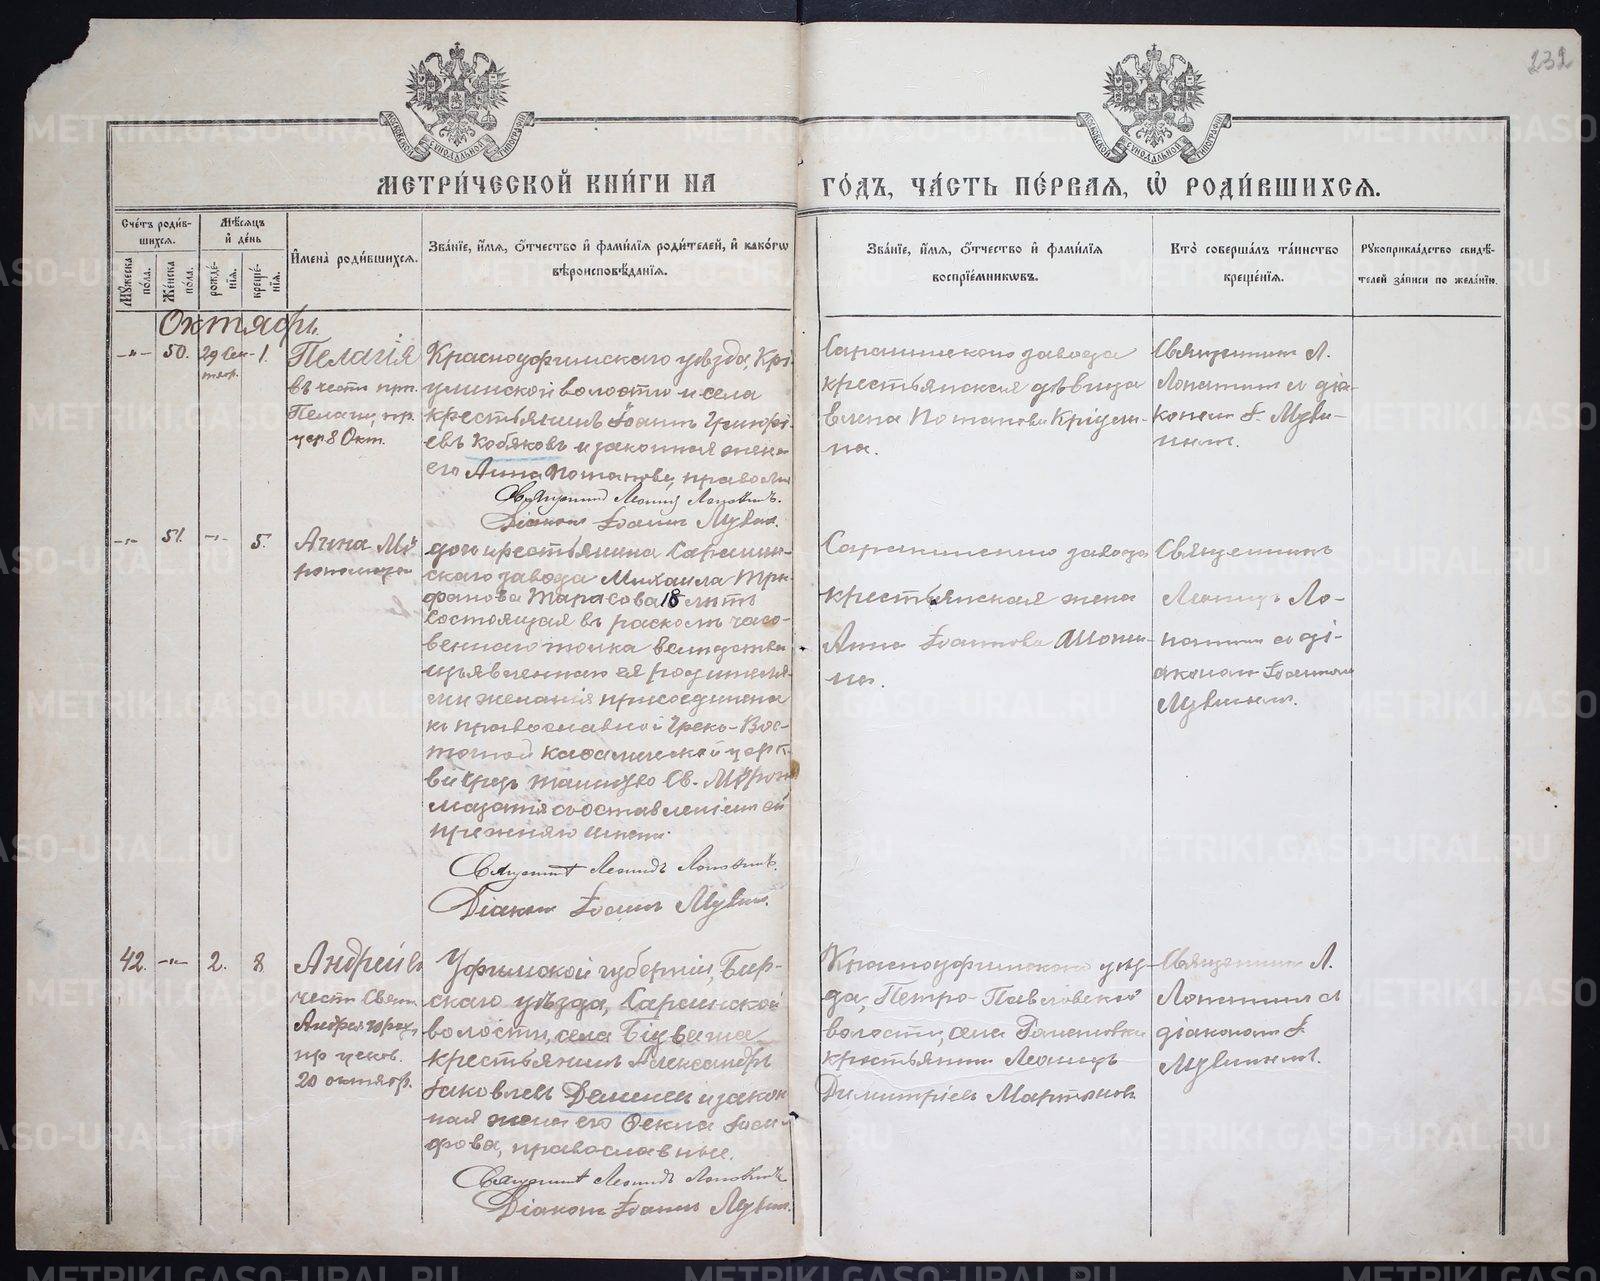 232
МОСКОВСКОЙ СѴНОДАЛЬНОЙ ТИПОГРАФІИ
МОСКОВСКОЙ СѴНОДАЛЬНОЙ ТИПОГРАФІИ
МЕТРИ́ЧЕСКОЙ КНИ́ГИ НА
ГО́ДЪ, ЧА́СТЬ ПЕ́РВАЯ, Ѡ҆ РОДИ́ВШИХСЯ.
Сче́тъ роди́в-
шихся.
Мѣ́сяцъ
и҆ де́нь
Мꙋ́жеска по́ла.
Же́нска по́ла.
рожде́-нїя.
креще́-нїя.
И҆мена̀ роди́вшихся.
Зва́нїе, и҆́мя, ѻ҆́тчество и҆ фами́лїя роди́телей, и҆ како́гѡ
вѣроисповѣ́данїя.
Зва́нїе, и҆́мя, ѻ҆́тчество и҆ фами́лїя
воспрїе́мникѡвъ.
Кто̀ соверша́лъ та́инство
креще́нїя.
Рꙋкоприкла́дство свидѣ́-
телей за́писи по жела́нїю.
Октябрь.
-„- 50. 29 Сен-
тябр. 1.
Пелагія
въ честь прп.
Пелагіи, пр.
цер 8 Окт.
Красноуфимскаго уѣзда, Кри-
улинской волости и села
крестьянинъ Іоаннъ Григорі-
евъ Кобяковъ и законная жена
его Анна Потапова, правосл.
Священникъ Леонидъ Лопатинъ.
Діаконъ Іоаннъ Мувин.
Саранинскаго завода
крестьянская дѣвица
Елена Потапова Кріули-
на.
Священникъ Л.
Лопатинъ съ діа-
кономъ І. Муви-
нымъ.
-„- 51. -„- 5.
Анна Мѵ
ропомаза
дочь крестьянина Саранин-
скаго завода Михаила Три-
фонова Тарасова 18 лѣтъ
состоящая въ расколѣ часо-
веннаго толка вслѣдствіе
изъявленнаго ея родителя-
ми желанія присоединена
къ православной Греко-Вос-
точной каѳолической церк-
ви чрезъ таинство Св. Мѵропо
мазанія съ оставленіемъ ей
прежняго имени.
Священникъ Леонидъ Лопатинъ.
Діаконъ Іоаннъ Мувин.
Саранинскаго завода
крестьянская жена
Анна Іоаннова
на.
Священникъ
Леонидъ Ло-
патинъ съ ді-
акономъ Іоанномъ
Мувинымъ.
42. -„- 2. 8
Андрей въ
честь Свят.
Андрея
пр церков.
20 октябр.
Уфимской губерніи, Бир-
скаго уѣзда,
волости, села
крестьянинъ Александръ
Іаковлевъ Деминъ и закон
ная жена его Ѳекла Іоси
фова, православные.
Священникъ Леонидъ Лопатинъ
Діаконъ Іоаннъ Мувин.
Красноуфимскаго уѣз-
да, Петро-Павловской
волости, села
крестьянинъ Леонидъ
Димитріевъ Мартьянов
Священникъ Л.
Лопатинъ съ
діакономъ І.
Мувинымъ.